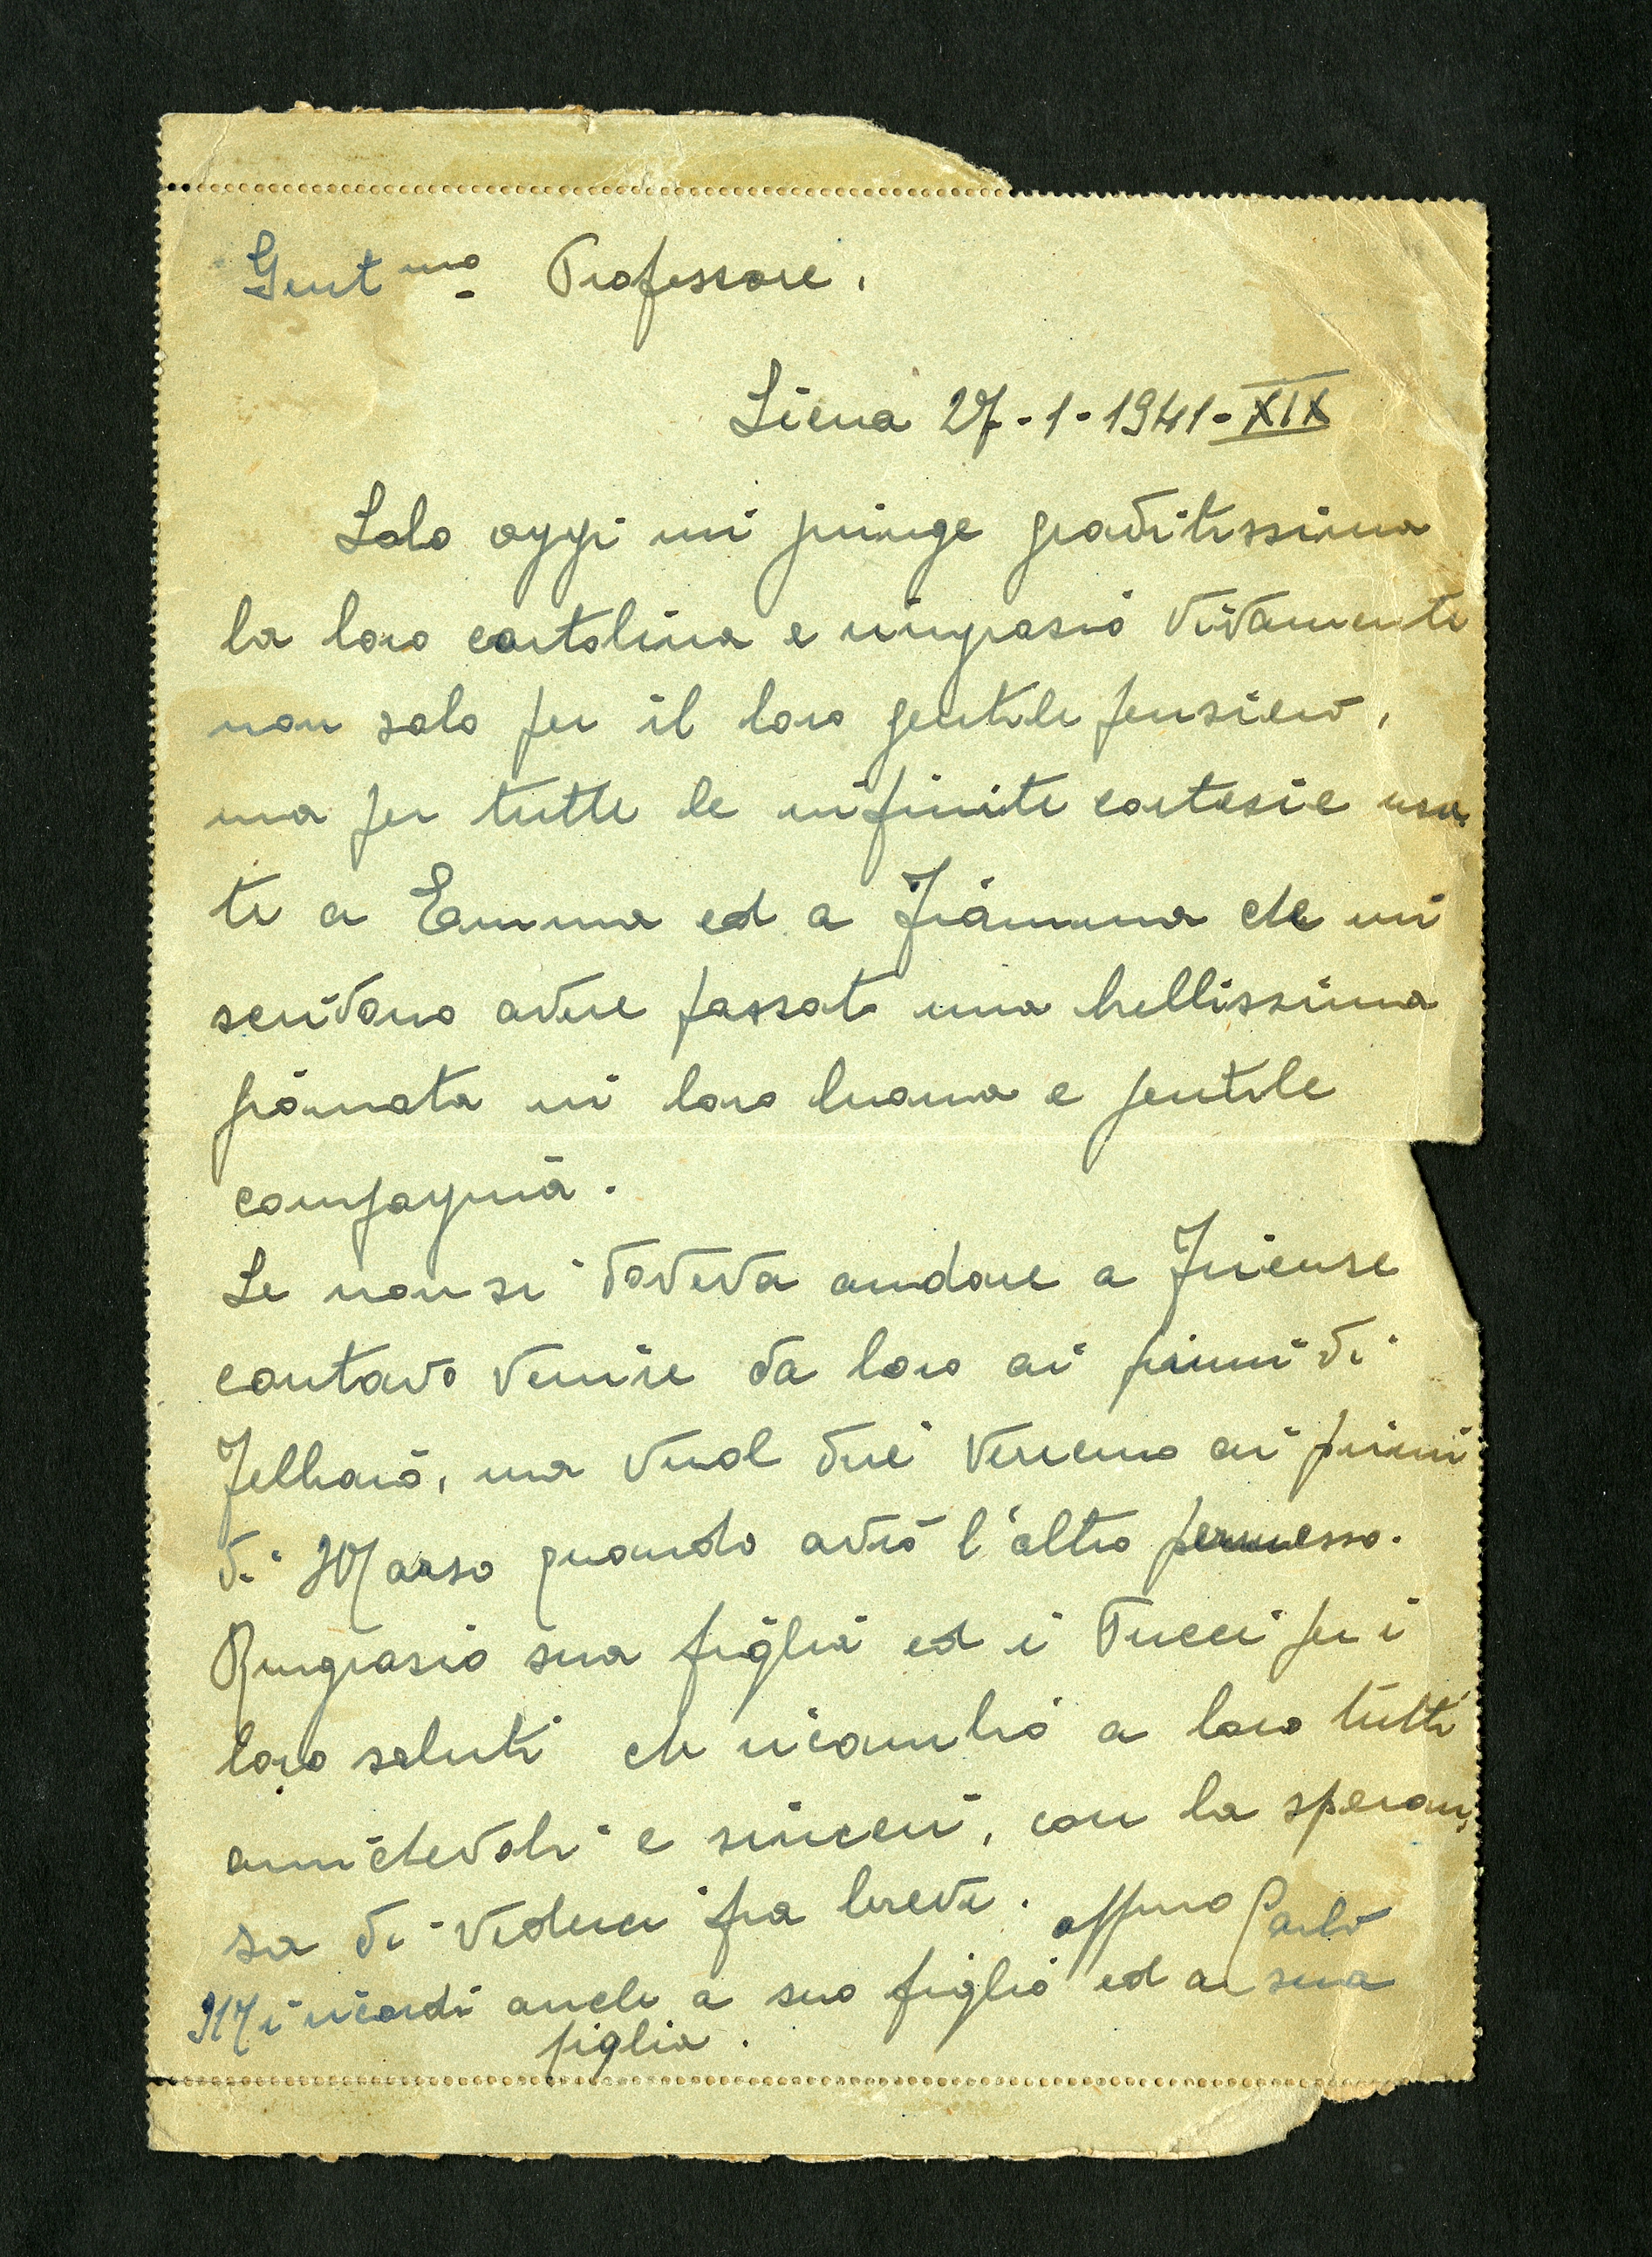 Gent.mo Professore,
Siena 27-1-1941-XIX
Solo oggi mi giunge graditissima
la loro cartolina e ringrazio vivamente
non solo per il loro gentile pensiero,
ma per tutte le infinite cortesie usa-
te a Emma ed a Fiamma che mi
scrivono avere passato una bellissima
giornata in loro buona e gentile
compagnia.
Se non si doveva andare a Firenze
contavo venire da loro ai primi di
Febbraio, ma vuol dire verremo ai primi
di Marzo quando avrò l'altro permesso.
Ringrazio sua figlia ed i Pucci per i
loro saluti che ricambio a loro tutti
amichevoli e sinceri, con la speran-
za di vederci fra breve. aff.mo Carlo
Mi ricordi anche a suo figlio ed a sua
figlia.